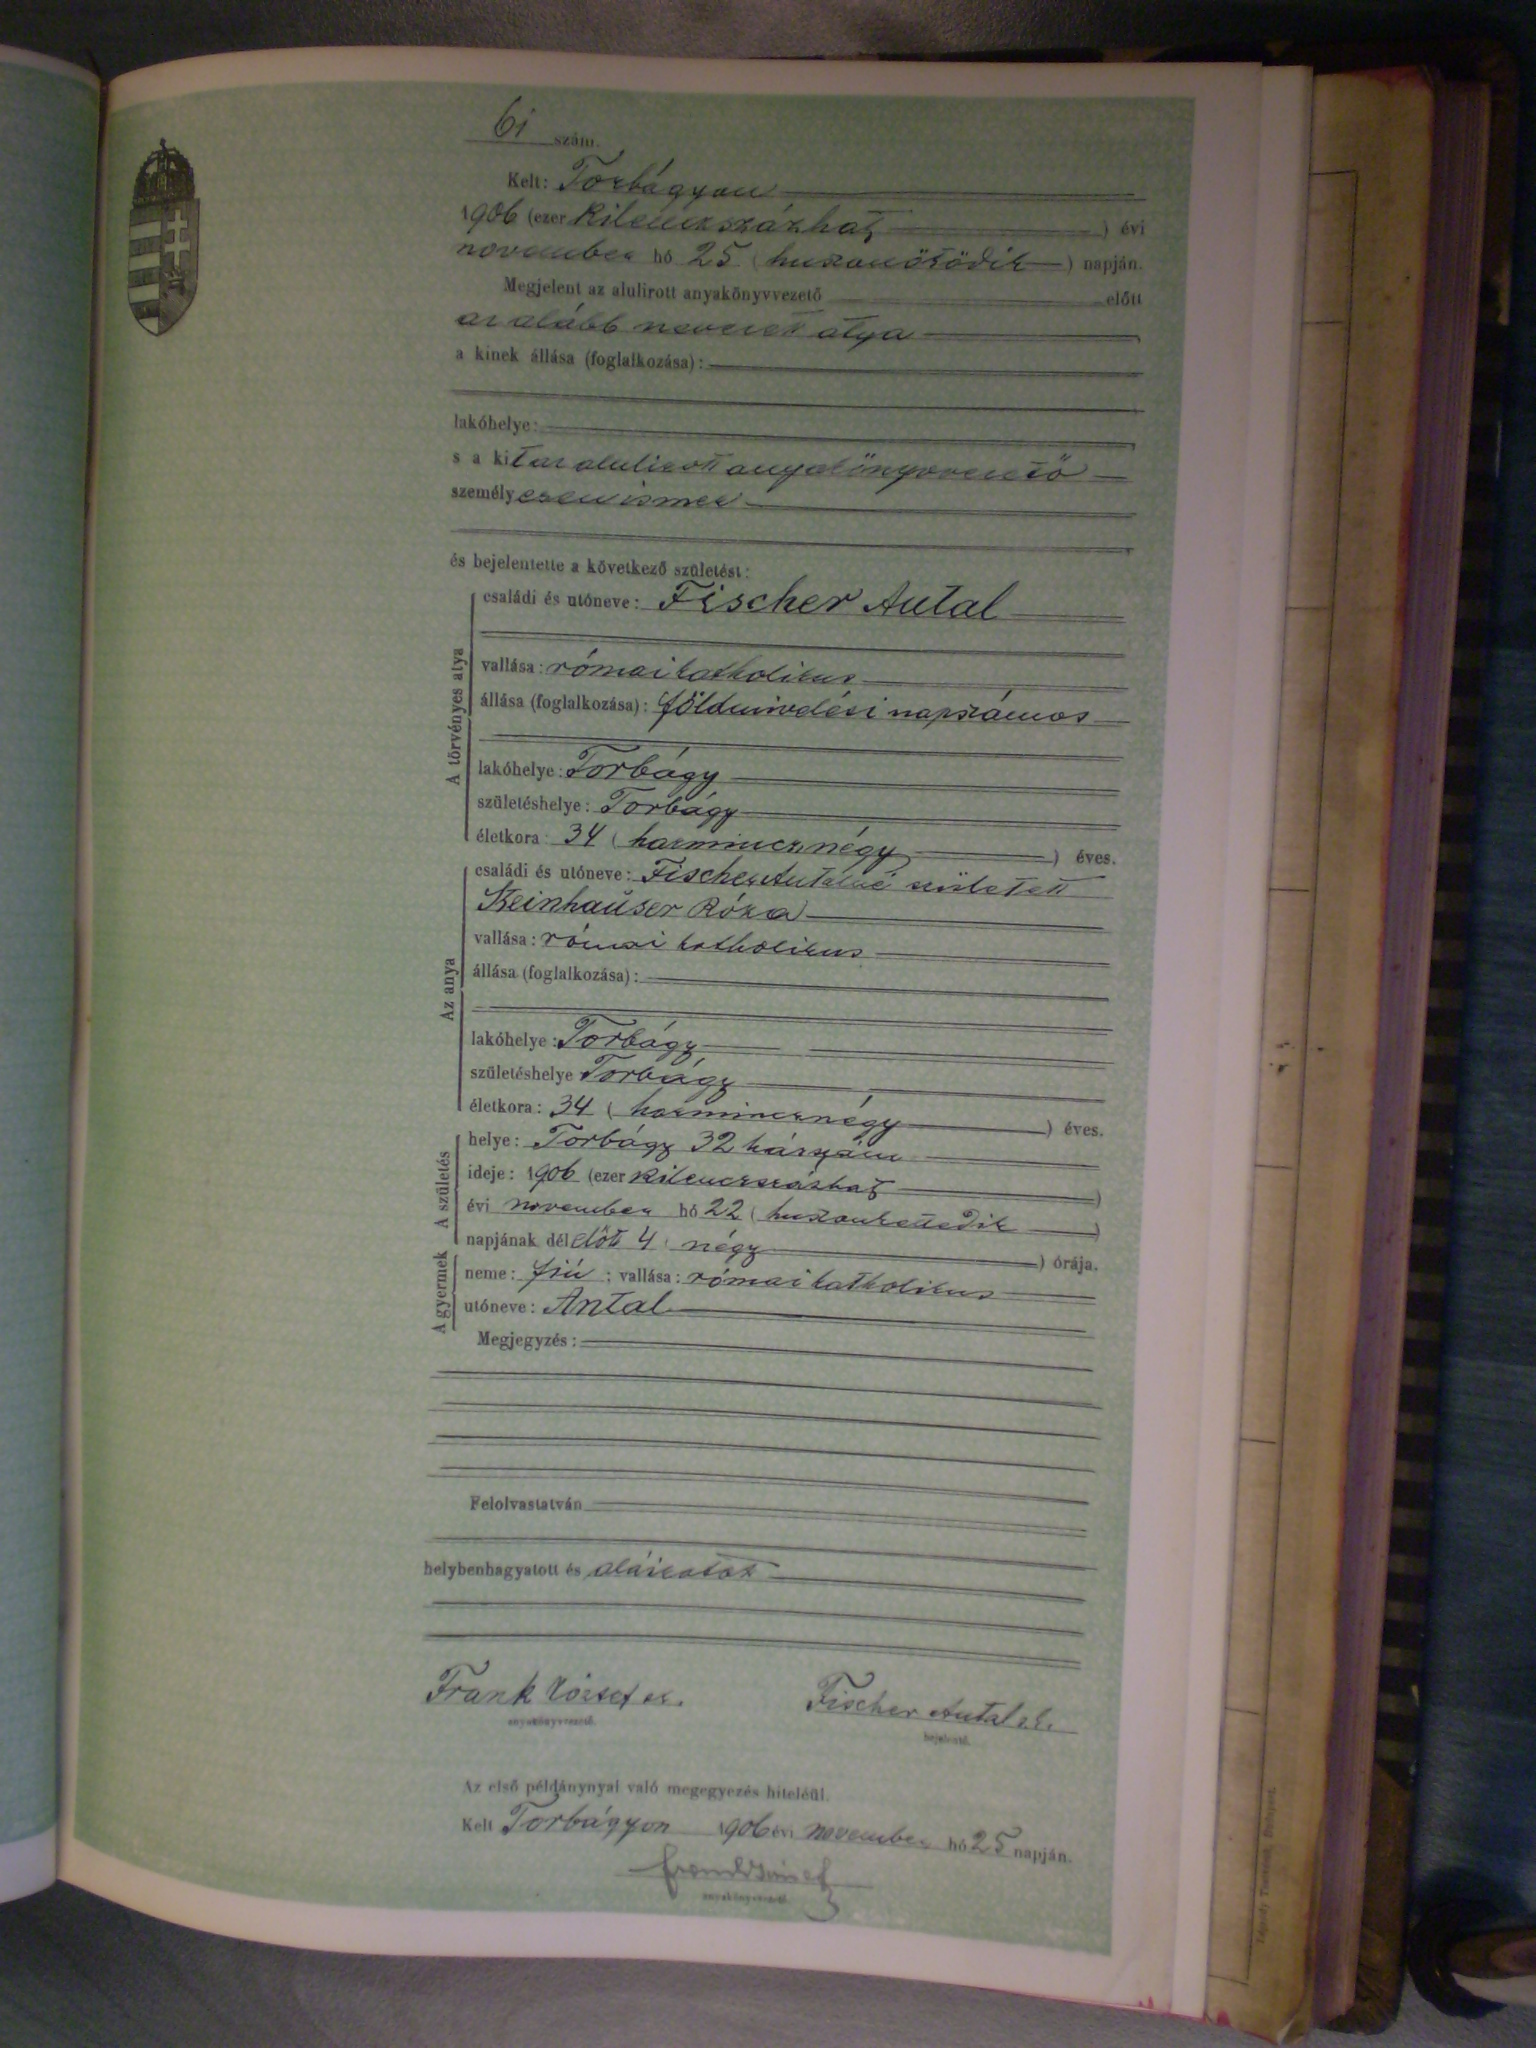 61 szám.
Kelt: Torbágyon
1906 (ezer kilenczszázhat) évi
november hó 25 (huszonötödik) napján.
Megjelent az alulirott anyakönyvvezető előtt
az alább nevezett atya
a kinek állása (foglalkozása):
lakóhelye:
s a kit az alulirott anyakönyvvezető
személyesen ismer
és bejelentette a következő születést:
A törvényes atya
családi és utóneve: Fischer Antal
vallása: római katholikus
állása (foglalkozása): földmivelési napszámos
lakóhelye: Torbágy
születéshelye: Torbágy
életkora: 34 (harmincznégy) éves.
Az anya
családi és utóneve: Fischer Antalné született
Steinhauser Róza
vallása: római katholikus
állása (foglalkozása):
lakóhelye: Torbágy
születéshelye Torbágy
életkora: 34 (harmincznégy) éves.
A születés
helye: Torbágy 32 házszám
ideje: 1906 (ezer kilenczszázhat)
évi november hó 22 (huszonkettedik)
napjának délelőtt 4 (négy) órája.
A gyermek
neme: fiú; vallása: római katholikus
utóneve: Antal
Megjegyzés:
Felolvastatván
helybenhagyatott és aláiratott
Frank József sk. Fischer Antal s.k.
anyakönyvvezető. bejelentő.
Az első példánynyal való megegyezés hiteléül.
Kelt Torbágyon 1906 évi november hó 25 napján.
Frank József
anyakönyvvezető.